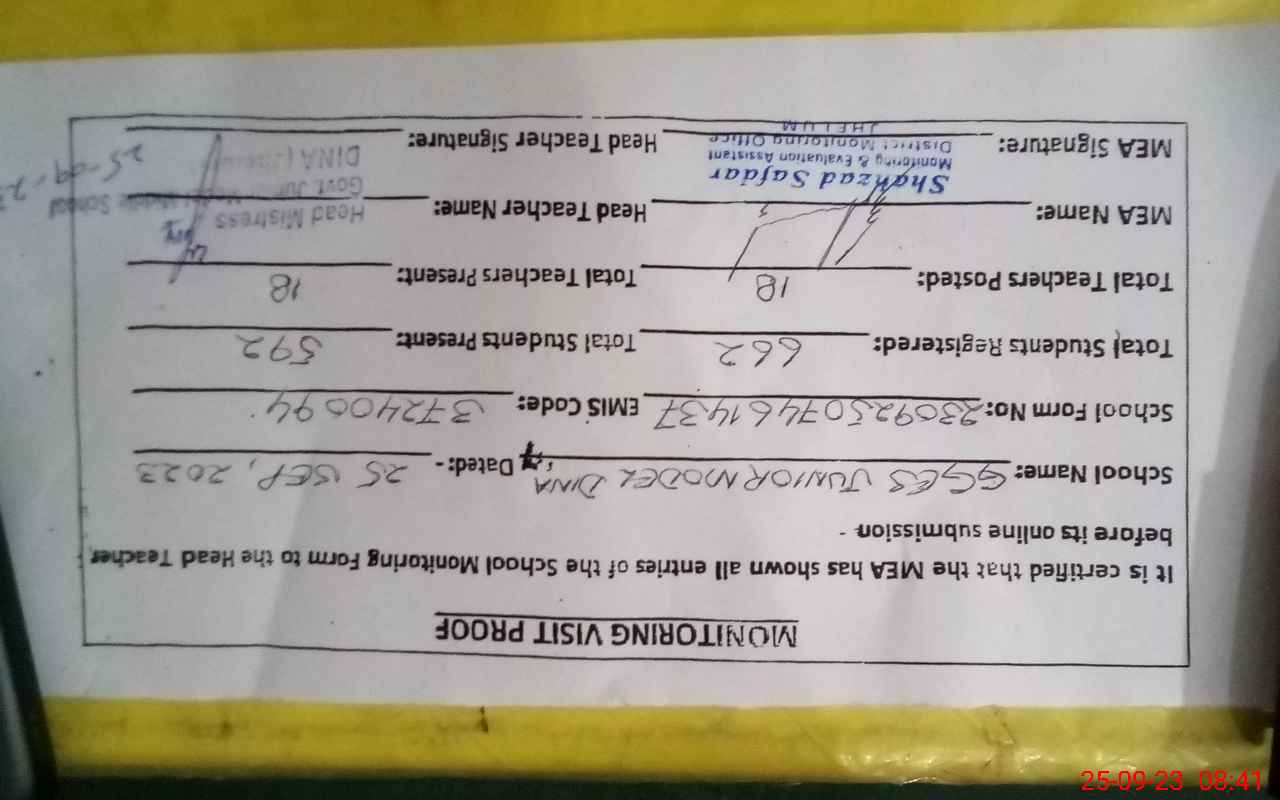 MONITORING VISIT PROOF
It is certified that the MEA has shown all entries of the School Monitoring Form to the Head Teacher
before its online submission -
School Name: GGES JUNIOR MODEL DINA Dated:- 25 SEP, 2023
School Form No: 2309250746 1437 EMIS Code: 37240094
Total Students Registered: 662 Total Students Present: 592
Total Teachers Posted: 18 Total Teachers Present: 18
MEA Name: Head Teacher Name: Head Mistress
Shahzad Safdar Govt. Junior Model Middle School
Monitoring & Evaluation Assistant DINA
District Monitoring Office 25-09-2
MEA Signature: JHELUM Head Teacher Signature:
25-09-23 08:41